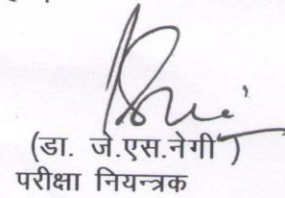 (डा. जे.एस.नेगी )
परीक्षा नियन्त्रक